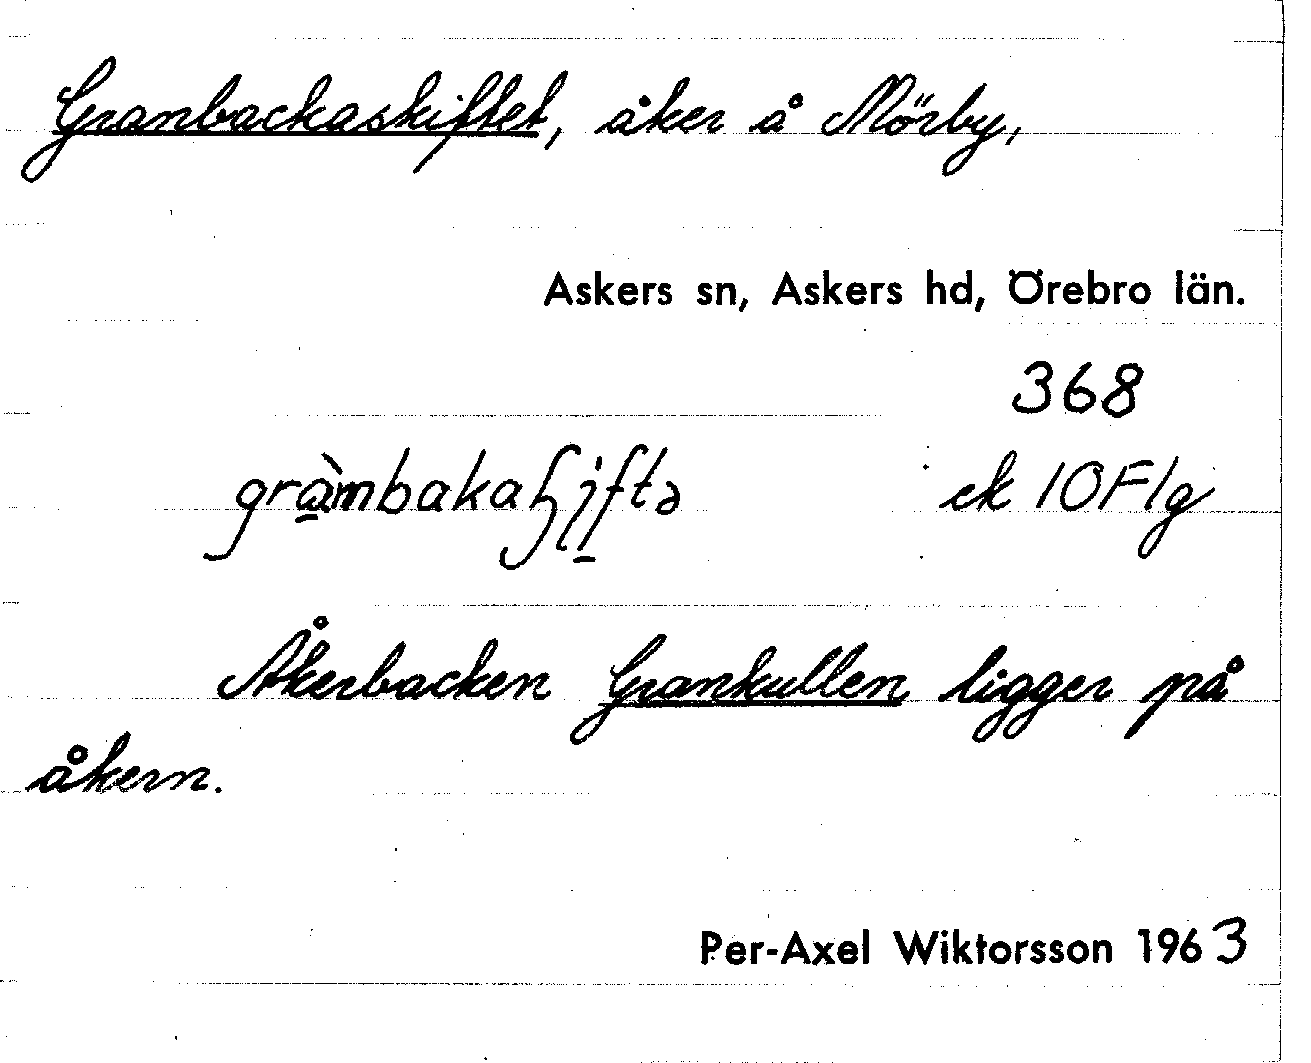 Granbackaskiftet, åker å Mörby,
Askers sn, Askers hd, Örebro län.
368
ek 10F1g
Åkerbacken Grankullen ligger på
åkern.
Per-Axel Wiktorsson 1963